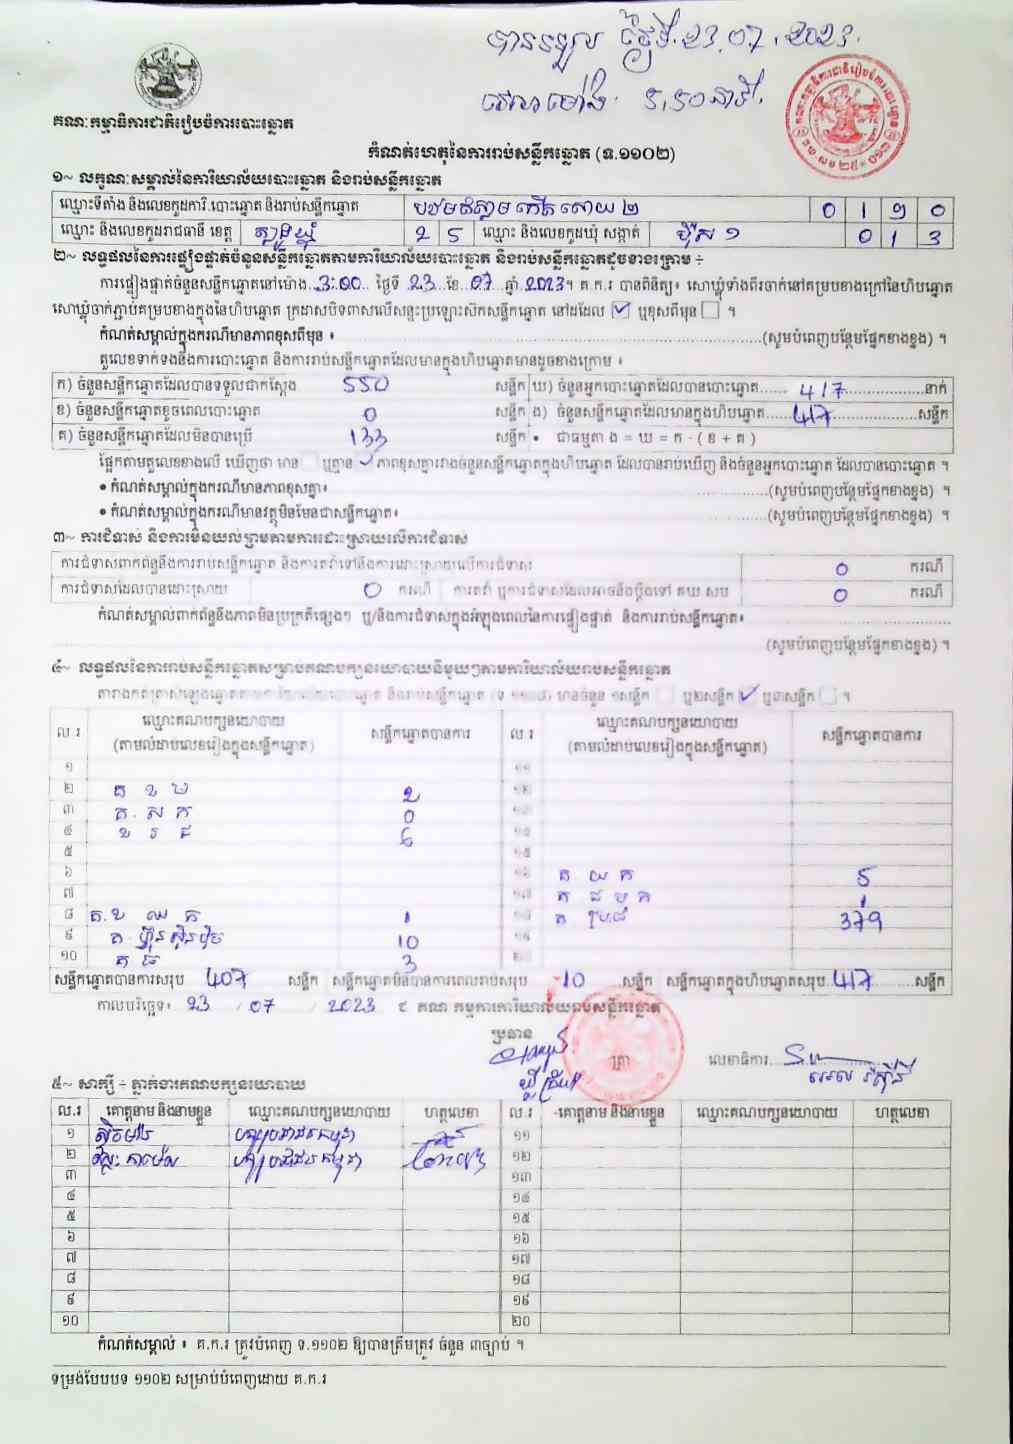 បានទទួល ថ្ងៃទី.23.07.2023.
វេលាម៉ោង 5.50 នាទី.
គណៈកម្មាធិការជាតិរៀបចំការបោះឆ្នោត
កំណត់ហេតុនៃការរាប់សន្លឹកឆ្នោត (ទ.១១០២)
១~ លក្ខណៈសម្គាល់នៃការិយាល័យបោះឆ្នោត និងរាប់សន្លឹកឆ្នោត
ឈ្មោះទីតាំង និងលេខកូដការិ.បោះឆ្នោត និងរាប់សន្លឹកឆ្នោត 0 1 9 0
ឈ្មោះ និងលេខកូដរាជធានី ខេត្ត ត្បូងឃ្មុំ 2 5 ឈ្មោះ និងលេខកូដឃុំ សង្កាត់ 0 1 3
២~ លទ្ធផលនៃការផ្ទៀងផ្ទាត់ចំនួនសន្លឹកឆ្នោតតាមការិយាល័យបោះឆ្នោត និងរាប់សន្លឹកឆ្នោតដូចខាងក្រោម ÷
ការផ្ទៀងផ្ទាត់ចំនួនសន្លឹកឆ្នោតនៅម៉ោង..3:00.. ថ្ងៃទី .23..ខែ..07..ឆ្នាំ.2023។ គ.ក.រ បានពិនិត្យ៖ សោឃ្លុំទាំងពីរចាក់នៅគម្របខាងក្រៅនៃហិបឆ្នោត
សោឃ្លុំចាក់ភ្ជាប់គម្របខាងក្នុងនៃហិបឆ្នោត ក្រដាសបិទពាសលើសន្ទះប្រឡោះស៊កសន្លឹកឆ្នោត នៅដដែល ☑ ឬខុសពីមុន ☐ ។
កំណត់សម្គាល់ក្នុងករណីមានភាពខុសពីមុន ៖ (សូមបំពេញបន្ថែមផ្នែកខាងខ្នង) ។
តួលេខទាក់ទងនឹងការបោះឆ្នោត និងការរាប់សន្លឹកឆ្នោតដែលមានក្នុងហិបឆ្នោតមានដូចខាងក្រោម ៖
ក) ចំនួនសន្លឹកឆ្នោតដែលបានទទួលជាក់ស្ដែង 550 សន្លឹក ឃ) ចំនួនអ្នកបោះឆ្នោតដែលបានបោះឆ្នោត...... 417 ......នាក់
ខ) ចំនួនសន្លឹកឆ្នោតខូចពេលបោះឆ្នោត 0 សន្លឹក ង) ចំនួនសន្លឹកឆ្នោតដែលមានក្នុងហិបឆ្នោត...... 417 ......សន្លឹក
គ) ចំនួនសន្លឹកឆ្នោតដែលមិនបានប្រើ 133 សន្លឹក • ជាធម្មតា ង = ឃ = ក - ( ខ + គ )
ផ្អែកតាមតួលេខខាងលើ ឃើញថា មាន ☐ ឬគ្មាន ☑ ភាពខុសគ្នារវាងចំនួនសន្លឹកឆ្នោតក្នុងហិបឆ្នោត ដែលបានរាប់ឃើញ និងចំនួនអ្នកបោះឆ្នោត ដែលបានបោះឆ្នោត ។
• កំណត់សម្គាល់ក្នុងករណីមានភាពខុសគ្នា៖ (សូមបំពេញបន្ថែមផ្នែកខាងខ្នង) ។
• កំណត់សម្គាល់ក្នុងករណីមានវត្ថុមិនមែនជាសន្លឹកឆ្នោត៖ (សូមបំពេញបន្ថែមផ្នែកខាងខ្នង) ។
៣~ ការជំទាស់ និងការមិនយល់ព្រមតាមការដោះស្រាយលើការជំទាស់
ការជំទាស់ពាក់ព័ន្ធនឹងការរាប់សន្លឹកឆ្នោត និងការតវ៉ាទៅនឹងការដោះស្រាយលើការជំទាស់ 0 ករណី
ការជំទាស់ដែលបានដោះស្រាយ 0 ករណី ការតវ៉ា ឬការជំទាស់ដែលអាចនឹងប្ដឹងទៅ គឃ សប 0 ករណី
កំណត់សម្គាល់ពាក់ព័ន្ធនឹងភាពមិនប្រក្រតីផ្សេងៗ ឬ/និងការជំទាស់ក្នុងអំឡុងពេលនៃការផ្ទៀងផ្ទាត់ និងការរាប់សន្លឹកឆ្នោត៖
(សូមបំពេញបន្ថែមផ្នែកខាងខ្នង) ។
៤~ លទ្ធផលនៃការរាប់សន្លឹកឆ្នោតសម្រាប់គណបក្សនយោបាយនីមួយៗតាមការិយាល័យរាប់សន្លឹកឆ្នោត
និងរាប់សន្លឹកឆ្នោត មានចំនួន ១សន្លឹក ☐ ឬ២សន្លឹក ☑ ឬ៣សន្លឹក ☐ ។
ល.រ ឈ្មោះគណបក្សនយោបាយ (តាមលំដាប់លេខរៀងក្នុងសន្លឹកឆ្នោត) សន្លឹកឆ្នោតបានការ ល.រ ឈ្មោះគណបក្សនយោបាយ (តាមលំដាប់លេខរៀងក្នុងសន្លឹកឆ្នោត) សន្លឹកឆ្នោតបានការ
១ ១១
២ គ ខ ម 2 ១២
៣ គ. ស ក 0 ១៣
៤ ខ រ ជ 6 ១៤
៥ ១៥
៦ ១៦ គ យ ក 5
៧ ១៧ គ ជ ប ក
៨ គ.ខ ឈ ក 1 ១៨ គ ប្រ.ជ 379
៩ 10 ១៩
១០ គ ធ 3 ២០
សន្លឹកឆ្នោតបានការសរុប 407 សន្លឹក សន្លឹកឆ្នោតមិនបានការពេលរាប់សរុប 10 សន្លឹក សន្លឹកឆ្នោតក្នុងហិបឆ្នោតសរុប 417 សន្លឹក
កាលបរិច្ឆេទ៖ 23 / 07 / 2023 ៩ គណៈកម្មការការិយាល័យរាប់សន្លឹកឆ្នោត
ប្រធាន
ត្រា លេខាធិការ
៥~ សាក្សី ÷ ភ្នាក់ងារគណបក្សនយោបាយ
ល.រ គោត្តនាម និងនាមខ្លួន ឈ្មោះគណបក្សនយោបាយ ហត្ថលេខា ល.រ គោត្តនាម និងនាមខ្លួន ឈ្មោះគណបក្សនយោបាយ ហត្ថលេខា
១ ១១
២ ១២
៣ ១៣
៤ ១៤
៥ ១៥
៦ ១៦
៧ ១៧
៨ ១៨
៩ ១៩
១០ ២០
កំណត់សម្គាល់ ៖ គ.ក.រ ត្រូវបំពេញ ទ.១១០២ ឱ្យបានត្រឹមត្រូវ ចំនួន ៣ច្បាប់ ។
ទម្រង់បែបបទ ១១០២ សម្រាប់បំពេញដោយ គ.ក.រ